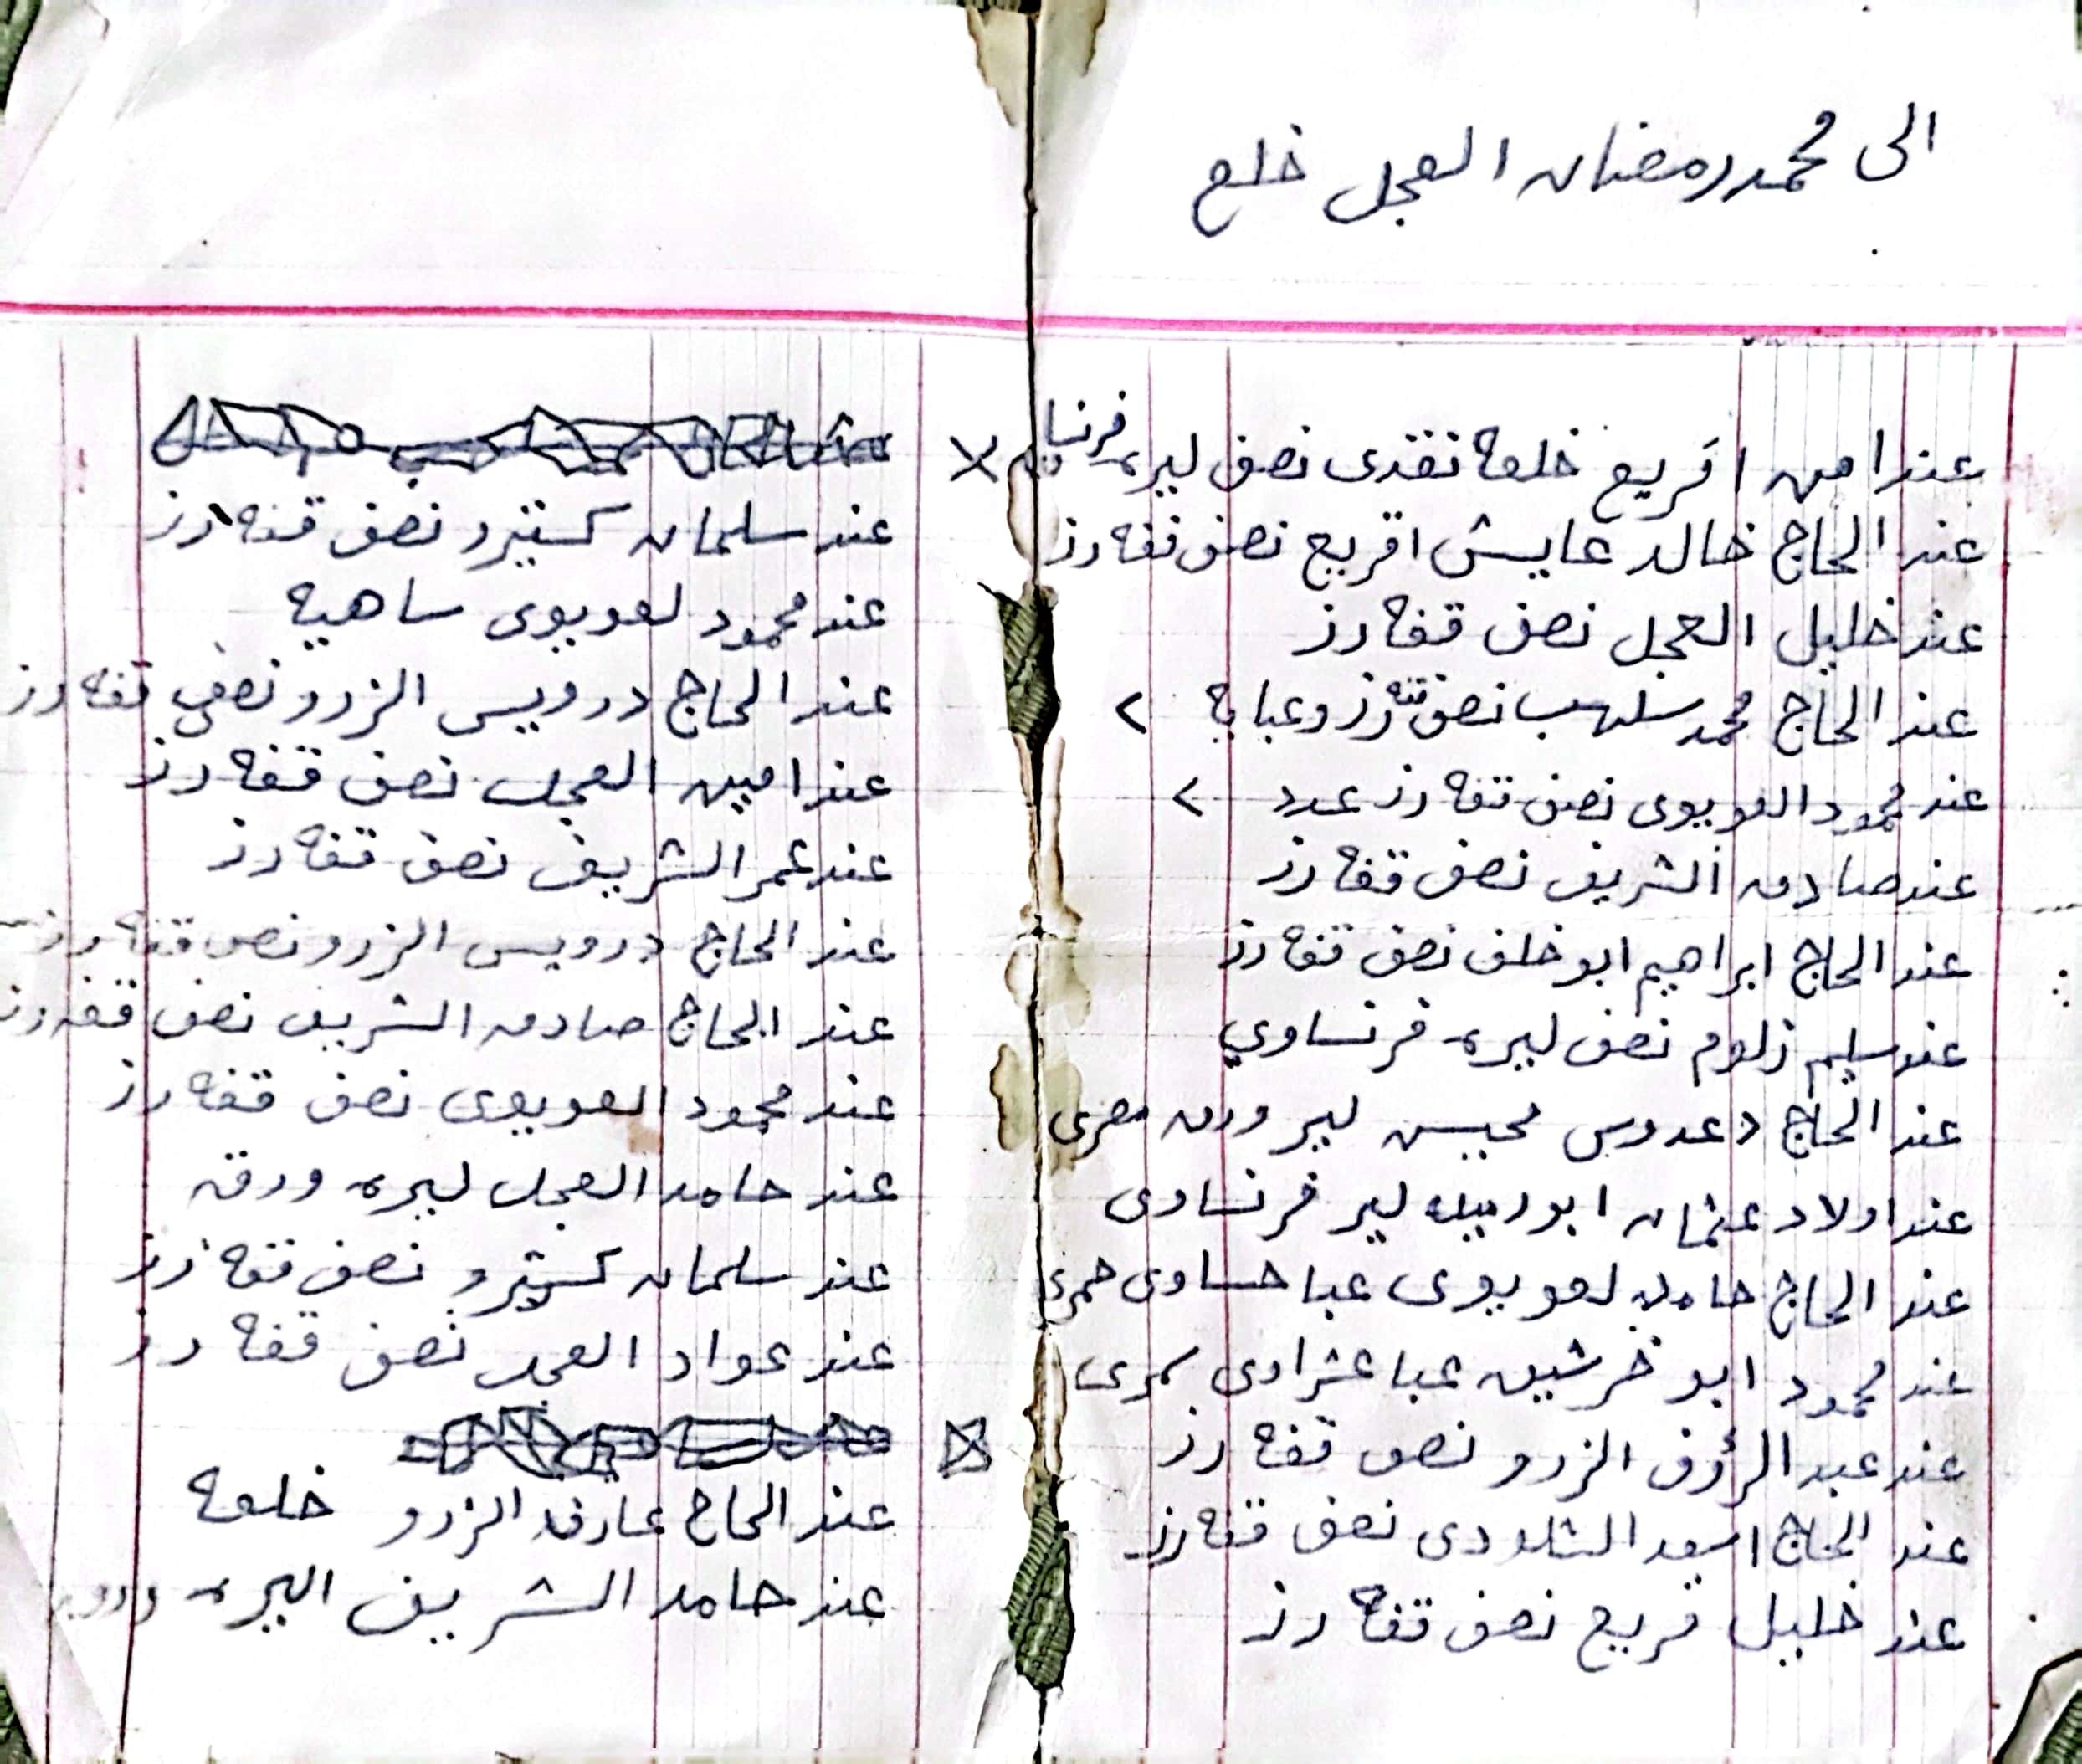 الى محمد رمضان العجل خلع
عند امين اقريع خلعة نقدى نصف ليره فرنساوي
عند الحاج خالد عايش اقريع نصف قفة رز
عند خليل العجل نصف قفة رز
عند الحاج محمد سلهب نصف قفة رز وعباية >
عند محمود العويوى نصف قفة رز عدد >
عند صادق الشريف نصف قفة رز
عند الحاج ابراهيم ابو خلف نصف قفة رز
عند سليم زلوم نصف ليره فرنساوي
عند الحاج دعدوس محيسن لير ورق مصرى
عند اولاد عثمان ابو رميله لير فرنساوى
عند الحاج حامد لعويوى عبا حساوى حمرى
عند محمود ابو خرشيق عبا عشراوى سمرى
عند عبد الرؤف الزرو نصف قفة رز
عند الحاج اسعد التلودى نصف قفة رز
عند خليل قريع نصف قفة رز
عند سلمان كستيرو نصف قفة رز
عند محمود لعويوى ساهية
عند الحاج درويس الزرو نصف قفة رز
عند امين العجل نصف قفة رز
عند عمر الشريف نصف قفة رز
عند الحاج درويس الزرو نصف قفة رز
عند الحاج صادق الشريف نصف قفة رز
عند محمود العويوى نصف قفة رز
عند حامد العجل ليره ورق
عند سلمان كستيرو نصف قفة رز
عند عواد العجل نصف قفة رز
عند الحاج عارف الزرو خلعة
عند حامد الشريف اليره